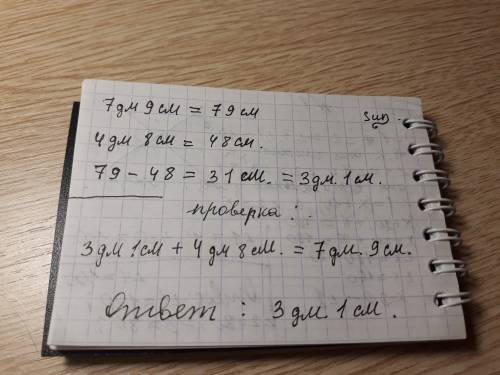 7дм 9см = 79см
4дм 8см = 48см.
79 - 48 = 31 см. = 3дм. 1см.
проверка :
3дм 1см + 4дм 8см. = 7дм. 9см.
Ответ : 3 дм. 1 см.